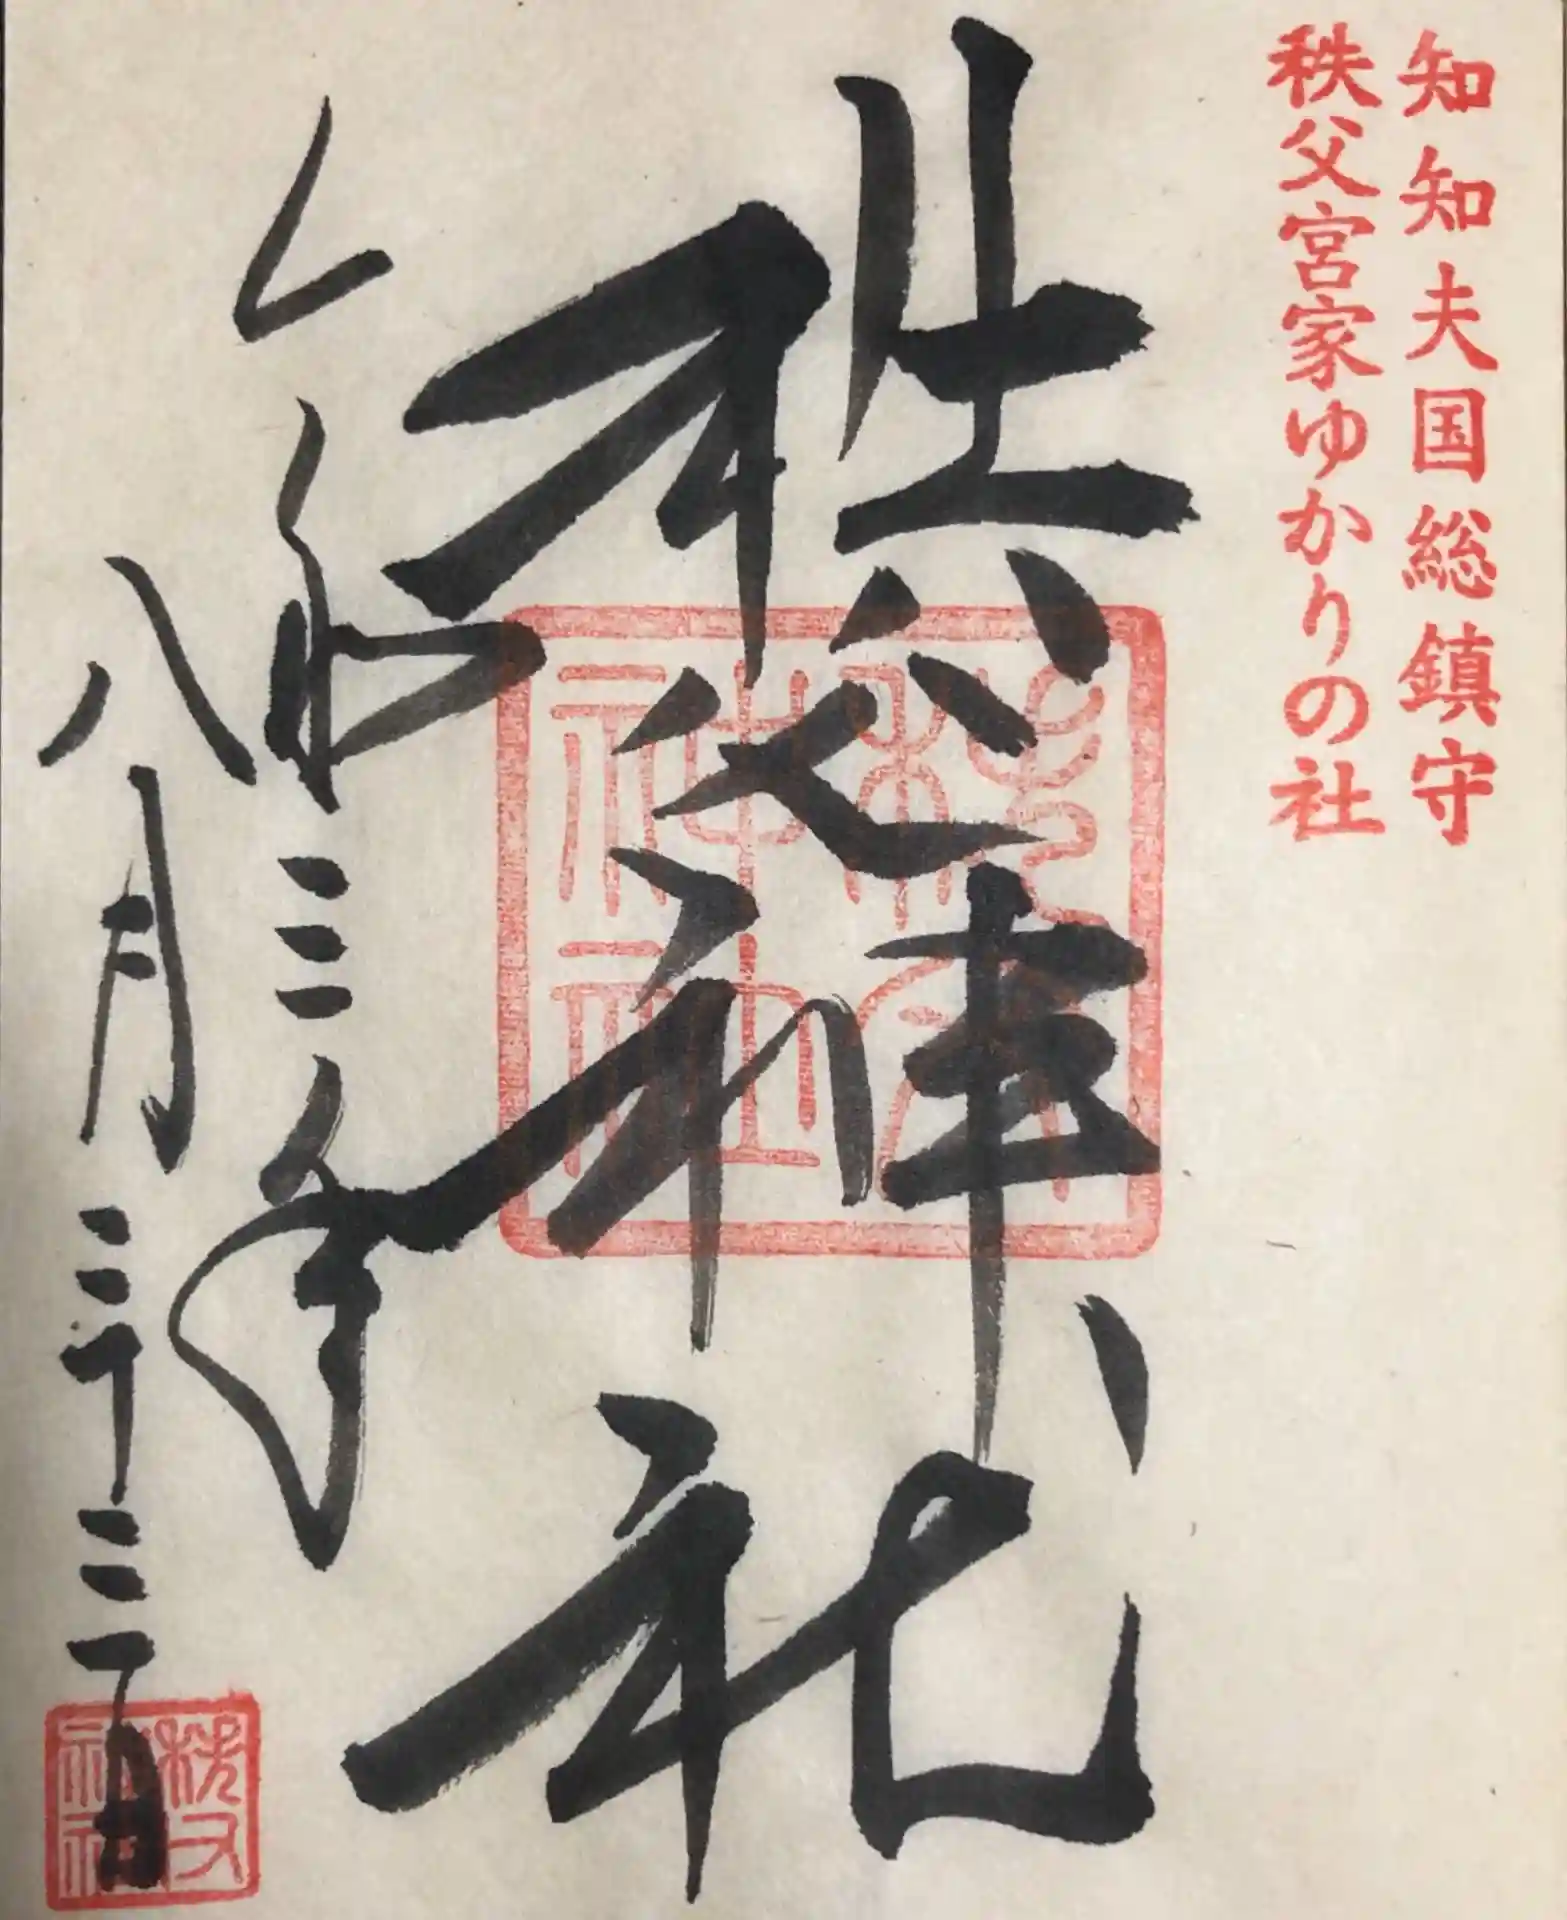 知知夫国総鎮守
秩父宮家ゆかりの社
秩父神社
令和三年
八月二十三日
秩父
神社
秩父
神社